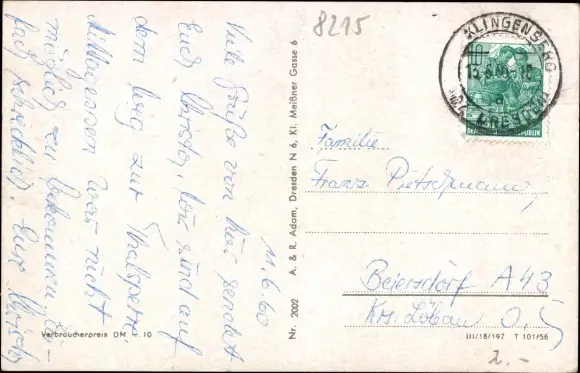 11.6.60
Viele Grüße von hier sendet
Euch Christa, wir sind auf
dem Weg zur Thalsperre
Mittagessen war nicht
möglich zu bekommen, ein-
fach schrecklich. Eure Christa
8215
Verbraucherpreis DM 0.10
Nr. 2002 A. & R. Adam, Dresden N 6, Kl. Meißner Gasse 6
KLINGENBERG
10
DEMOKRATISCHE REPUBLIK
Familie
Franz Pietschmann,
Beiersdorf A 43
Krs. Löbau
III/18/197 T 101/56
2.-